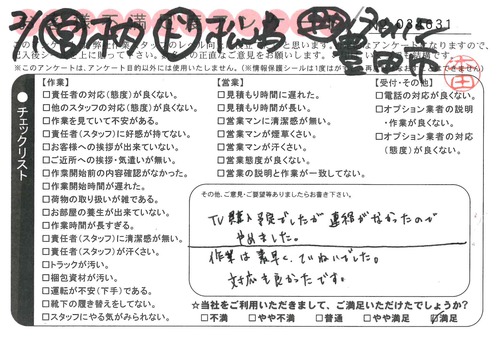 088031
※このアンケートは、アンケート目的以外には使用いたしません。
チェックリスト
【作業】
□責任者の対応(態度)が良くない。
□他のスタッフの対応(態度)が良くない。
□作業を見ていて不安がある。
□責任者(スタッフ)に好感が持てない。
□お客様への挨拶が出来ていない。
□ご近所への挨拶・気遣いが無い。
□作業開始前の内容確認がなかった。
□作業開始時間が遅れた。
□荷物の取り扱いが雑である。
□お部屋の養生が出来ていない。
□作業時間が長すぎる。
□責任者(スタッフ)に清潔感が無い。
□責任者(スタッフ)が汗くさい。
□トラックが汚い。
□梱包資材が汚い。
□運転が不安(下手)である。
□靴下の履き替えをしてない。
□スタッフにやる気がみられない。
【営業】
□見積もり時間に遅れた。
□見積もり時間が長い。
□営業マンに清潔感が無い。
□営業マンが煙草くさい。
□営業マンが汗くさい。
□営業態度が良くない。
□営業の説明と作業が一致してない。
【受付・その他】
□電話の対応が良くない。
□オプション業者の説明・作業が良くない。
□オプション業者の対応(態度)が良くない。
その他、ご意見・ご要望等ありましたらお書き下さい。
TV購入予定でしたが連絡がなかったので
やめました。
作業は素早く、ていねいでした。
対応も良かったです。
☆当社をご利用いただきまして、ご満足いただけたでしょうか?
□不満 □やや不満 □普通 □やや満足 ☑満足